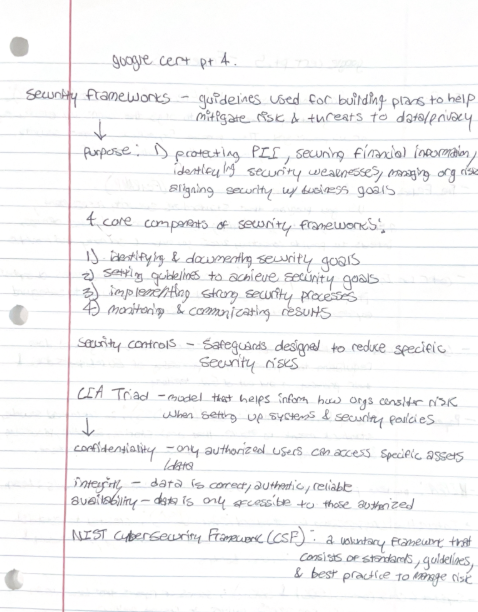 google cert pt 4.
Security frameworks - guidelines used for building plans to help
mitigate risk & threats to data/privacy
↓
purpose: 1) protecting PII, securing financial information,
identifying security weaknesses, managing org risk
aligning security w/ business goals
4 core components of security frameworks:
1) identifying & documenting security goals
2) setting guidelines to achieve security goals
3) implementing strong security processes
4) monitoring & communicating results
Security controls - Safeguards designed to reduce specific
security risks
CIA Triad - model that helps inform how orgs consider risk
when setting up systems & security policies
↓
confidentiality - only authorized users can access specific assets
/data
integrity - data is correct, authentic, reliable
availability - data is only accessible to those authorized
NIST Cybersecurity Framework (CSF): a voluntary framework that
consists of standards, guidelines,
& best practice to manage risk